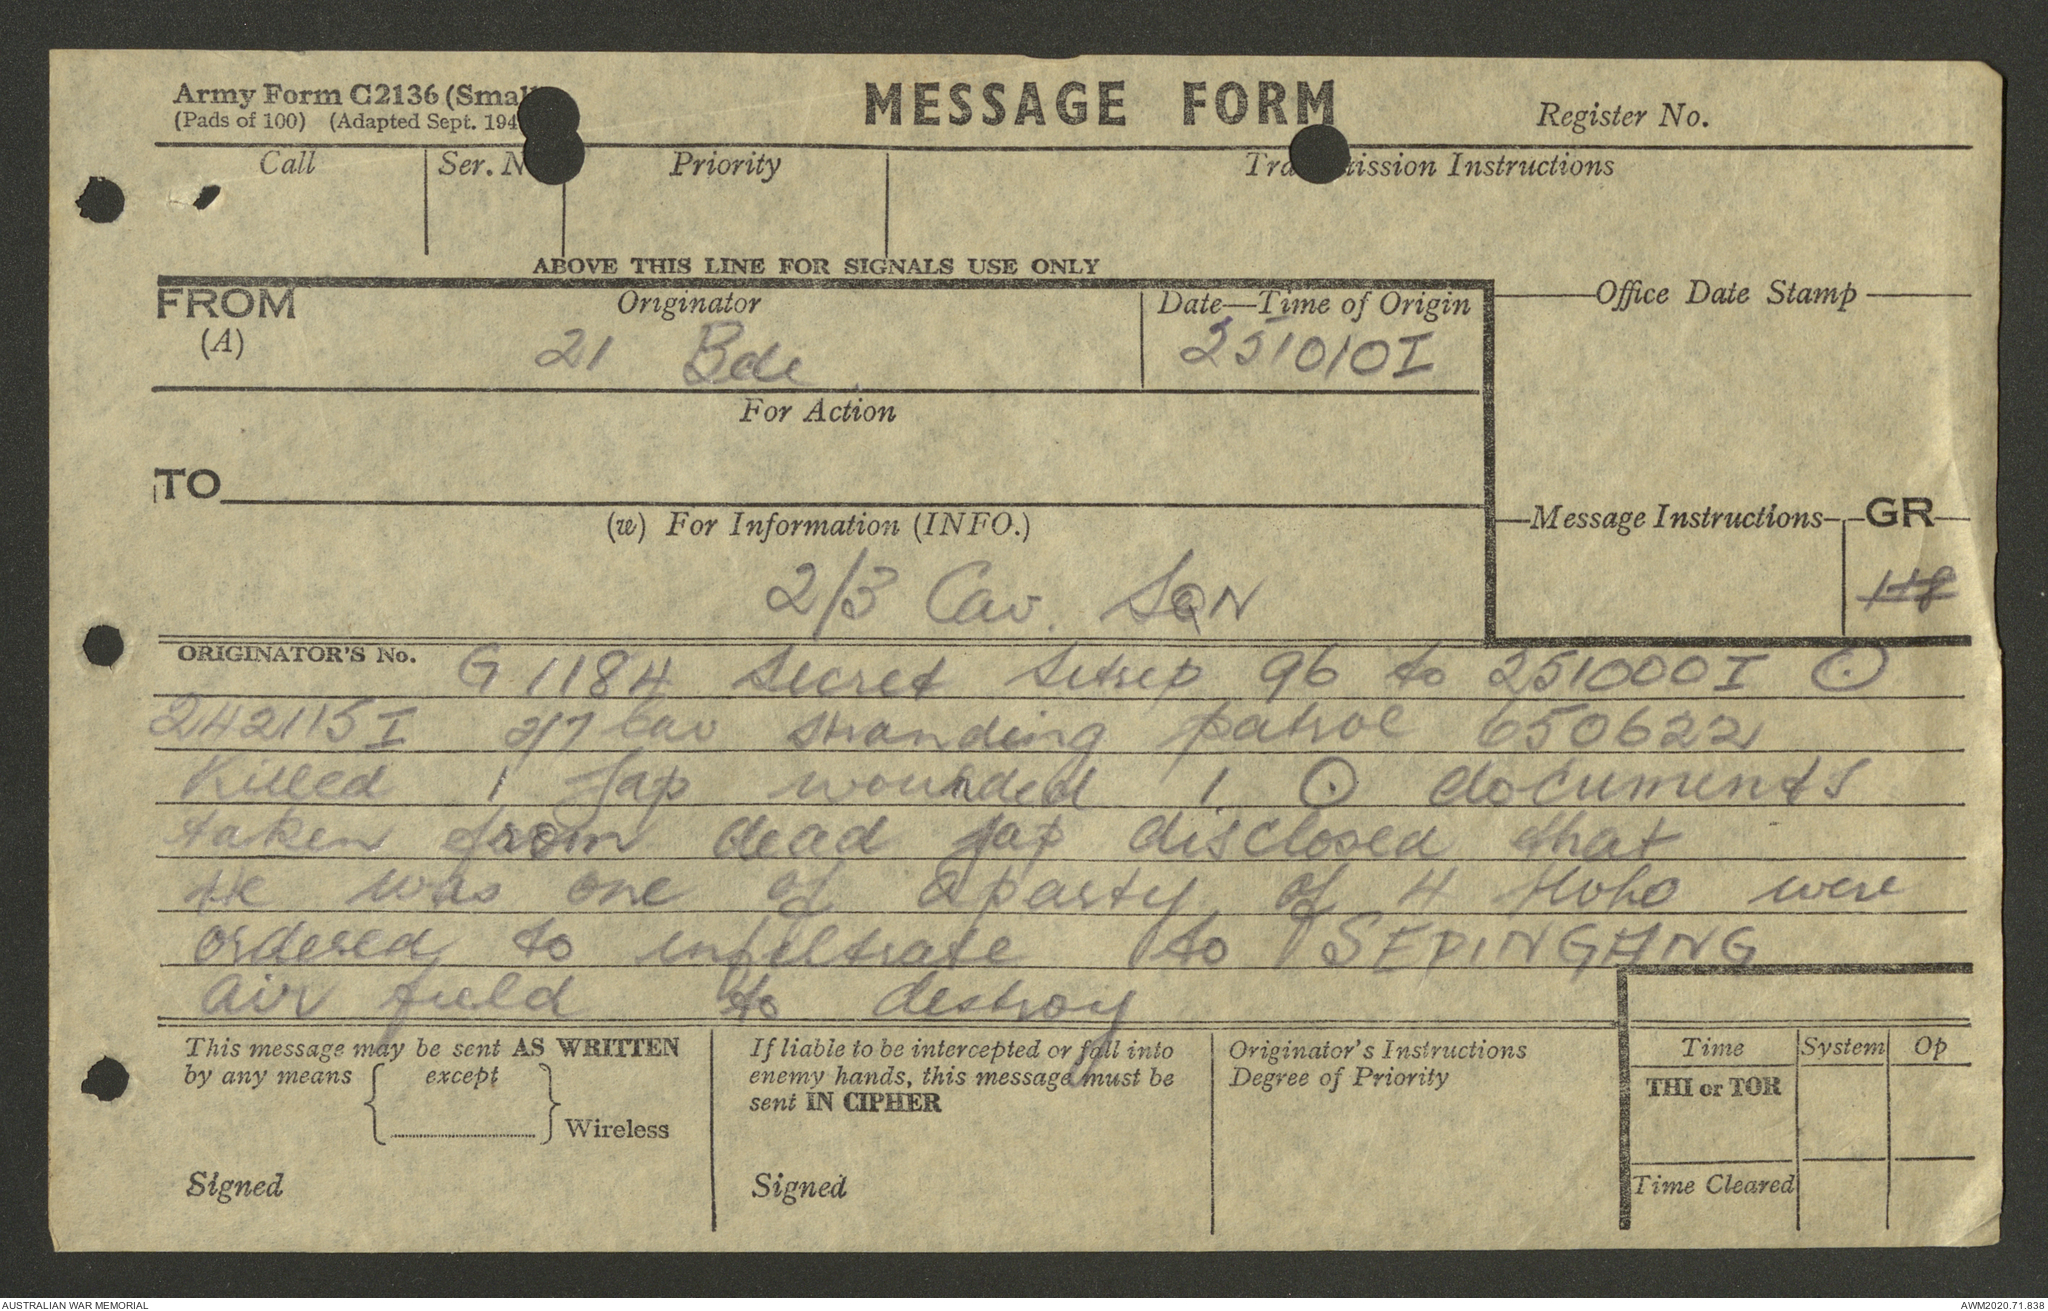 Army Form C2136 (Small
MESSAGE FORM
Register No.
(Pads of 100) (Adapted Sept. 194
Call
Ser. N
Priority
Transmission Instructions
ABOVE THIS LINE FOR SIGNALS USE ONLY
FROM
(A)
Originator
21 Bde
Date—Time of Origin
251010I
Office Date Stamp
For Action
TO
(w) For Information (INFO.)
2/3 Cav. SQN
Message Instructions
GR
148
ORIGINATOR'S No. G 1184 Secret Sitrep 96 to 251000I ⊙
242115I 2/7 Cav standing patrol 650622
Killed 1 Jap wounded 1 ⊙ documents
taken from dead Jap disclosed that
He was one of a party of 4 who were
ordered to infiltrate to SEPINGANG
Air field to destroy
This message may be sent AS WRITTEN
by any means except
Wireless
Signed
If liable to be intercepted or fall into
enemy hands, this message must be
sent IN CIPHER
Signed
Originator's Instructions
Degree of Priority
Time
System
Op
THI or TOR
Time Cleared
AUSTRALIAN WAR MEMORIAL
AWM2020.71.838